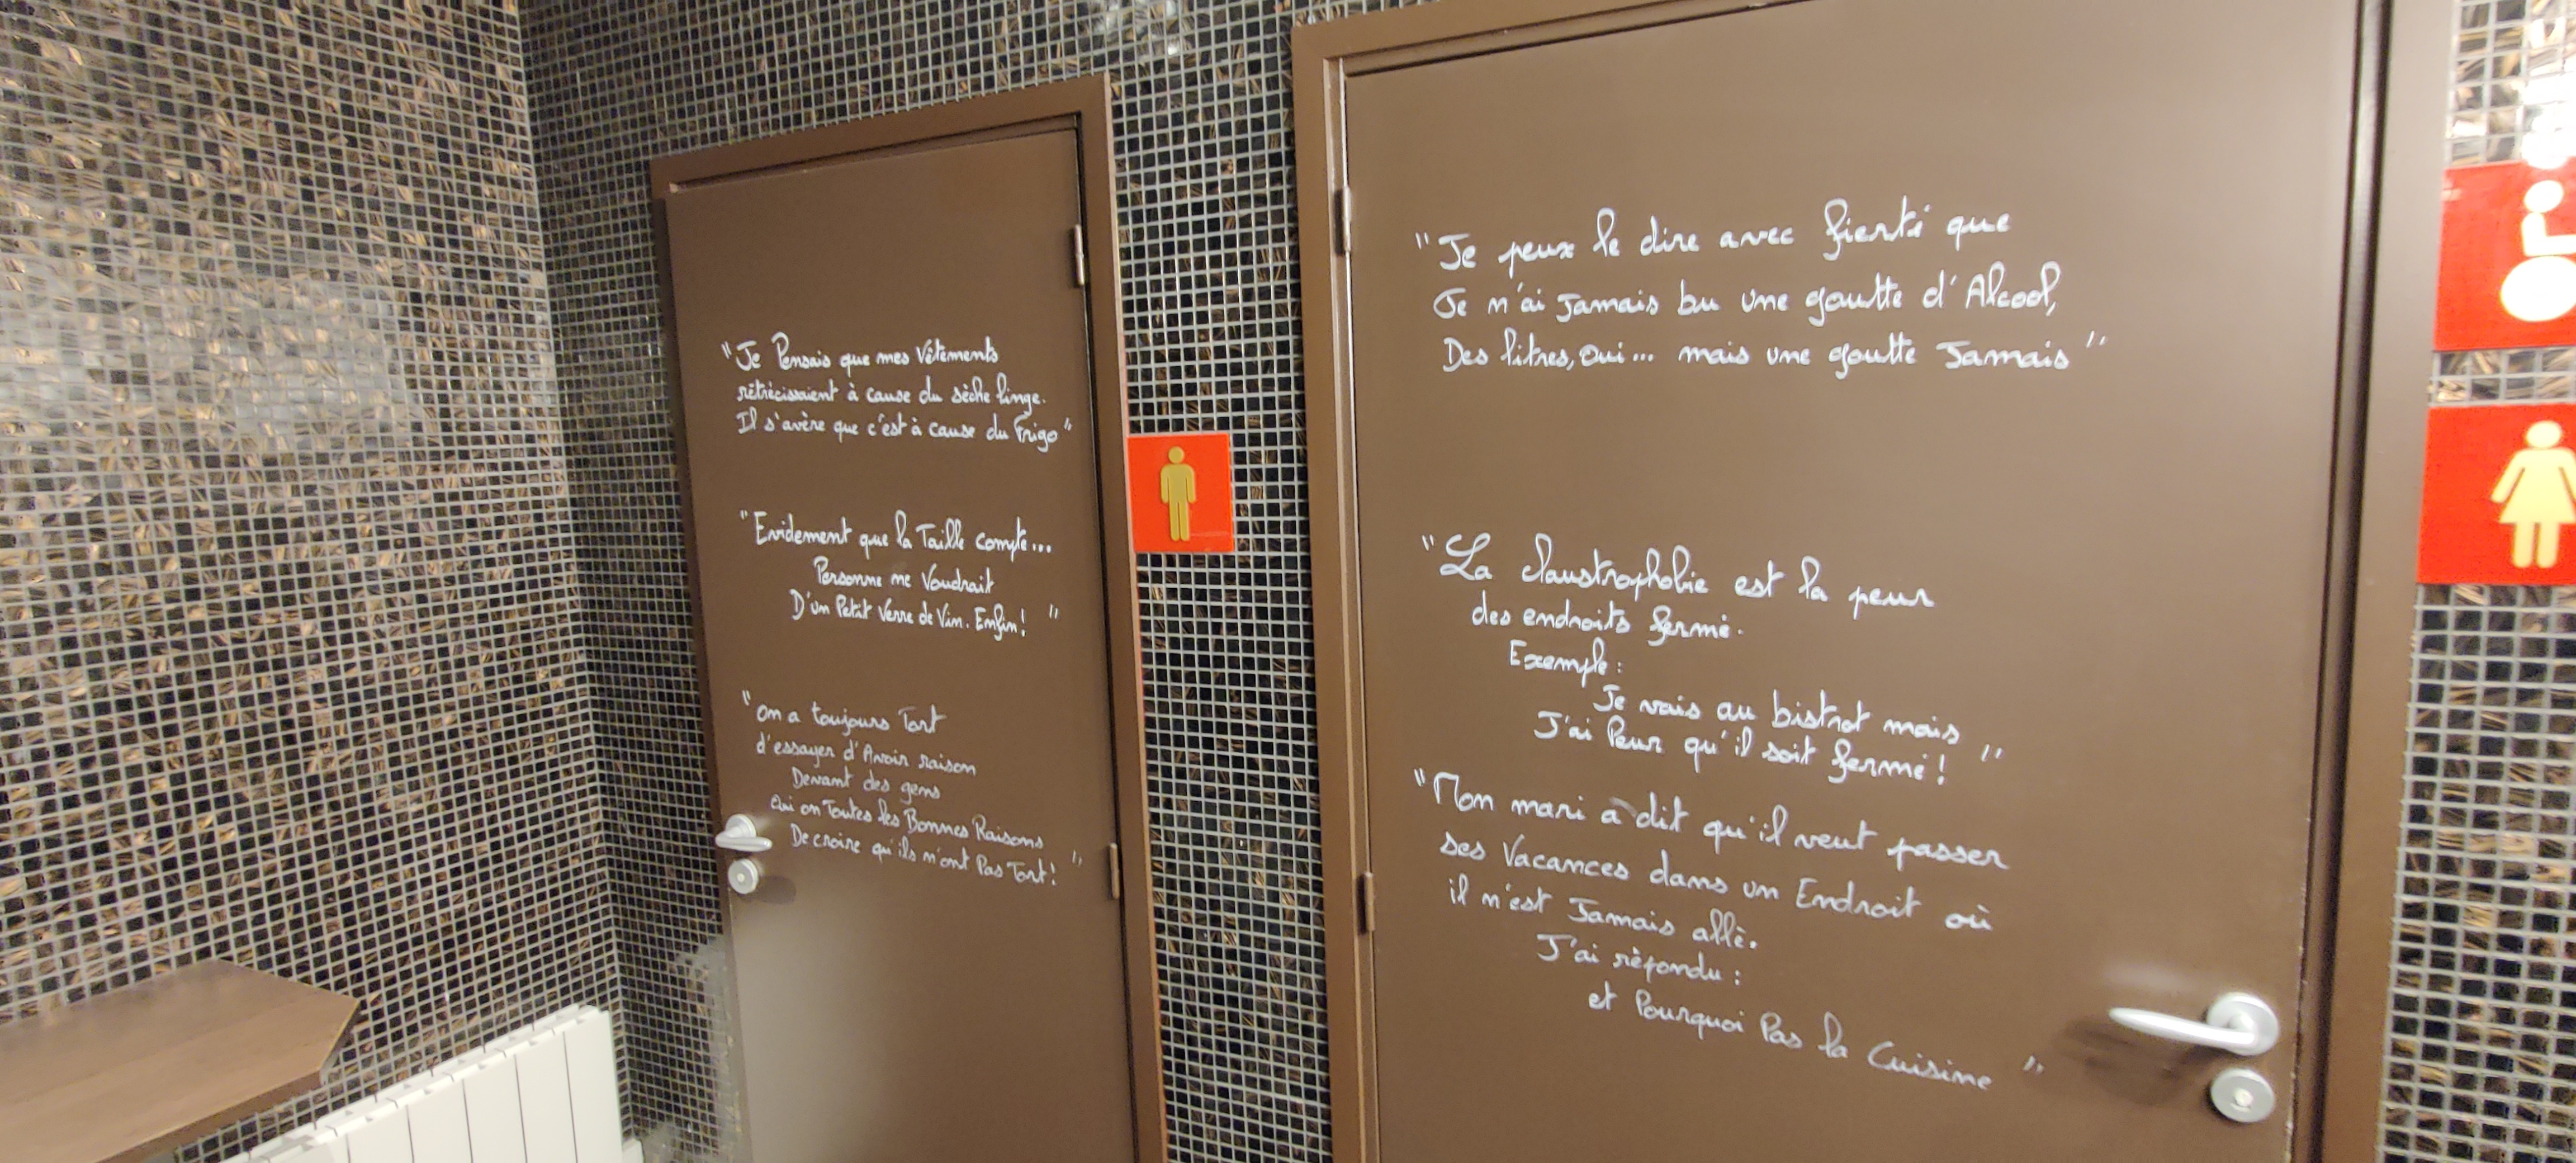 "Je Pensais que mes Vêtements
rétrécissaient à cause du sèche linge.
Il s'avère que c'est à cause du Frigo"
"Evidement que la Taille compte...
Personne ne Voudrait
D'un Petit Verre de Vin. Enfin! "
"On a toujours Tort
d'essayer d'Avoir raison
Devant des gens
Qui on Toutes les Bonnes Raisons
De croire qu'ils n'ont Pas Tort! "
"Je peux le dire avec fierté que
Je n'ai Jamais bu une goutte d'Alcool,
Des litres, Oui... mais une goutte Jamais"
"La claustrophobie est la peur
des endroits fermé.
Exemple:
Je vais au bistrot mais
J'ai Peur qu'il soit fermé! "
"Mon mari a dit qu'il veut passer
ses Vacances dans un Endroit où
il n'est Jamais allé.
J'ai répondu :
et Pourquoi Pas la Cuisine "